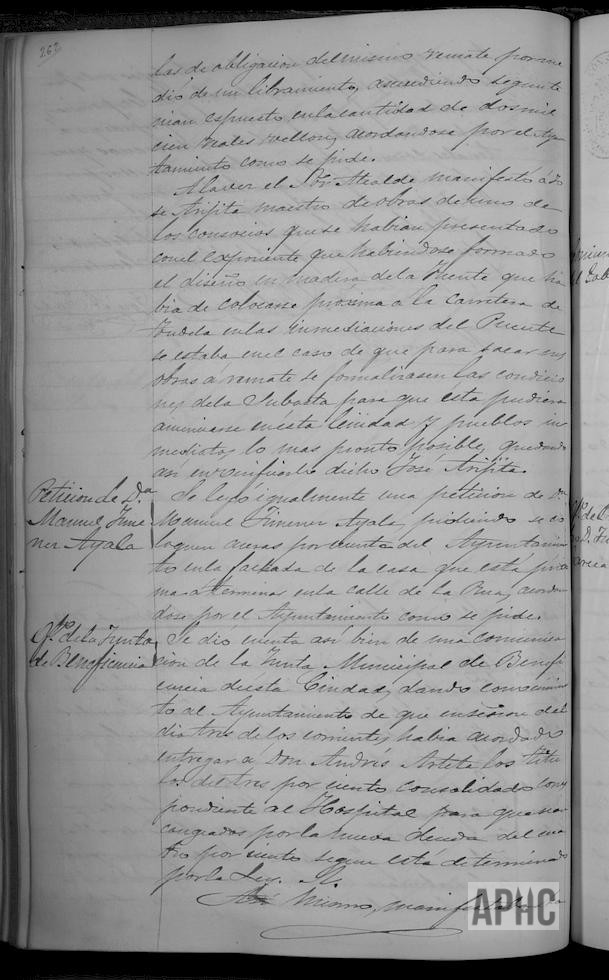 262
las de obligacion del mismo remate por me
dio de un libramiento, ascendiendo segun te
nian espuesto en la cantidad de dos mil
cien reales vellon, acordandose por el Ayun
tamiento como se pide.
A la vez el Sor. Alcalde manifestó á Jo
se Arpita maestro de obras de uno de
los consocios que se habian presentado
con el exponente que habiendose formado
el diseño en madera de la Fuente que ha
bia de colocarse próxima á la Carretera de
Tudela en las inmediaciones del Puente
se estaba en el caso de que para sacar sus
obras á remate se formalizasen las condicio
nes de la Subasta para que ésta pudiera
anunciarse en esta Ciudad y pueblos in
mediatos, lo mas pronto posible, quedando
asi en verificarlo dicho José Arpita.
Peticion de Dn
Manuel Jime
nez Ayala
Se leyó igualmente una peticion de Dn
Manuel Jimenez Ayala, pidiendo se co
loquen aceras por cuenta del Ayuntamien
to en la fachada de la casa que esta próxi
ma á terminar en la calle de la Rua, acordan
dose por el Ayuntamiento como se pide.
Ofo. de la Junta
de Beneficencia
Se dió cuenta asi bien de una comunica
cion de la Junta Municipal de Benefi
cencia de esta Ciudad, dando conocimien
to al Ayuntamiento de que en sesion del
dia tres de los corrientes habia acordado
entregar á Don Andrés Arteta los titu
los del tres por ciento consolidado corres
pondiente al Hospital para que sean
cangeados por la nueva deuda del cua
tro por ciento segun esta determinado
por la Ley.
Asi mismo, manifestado
APHC